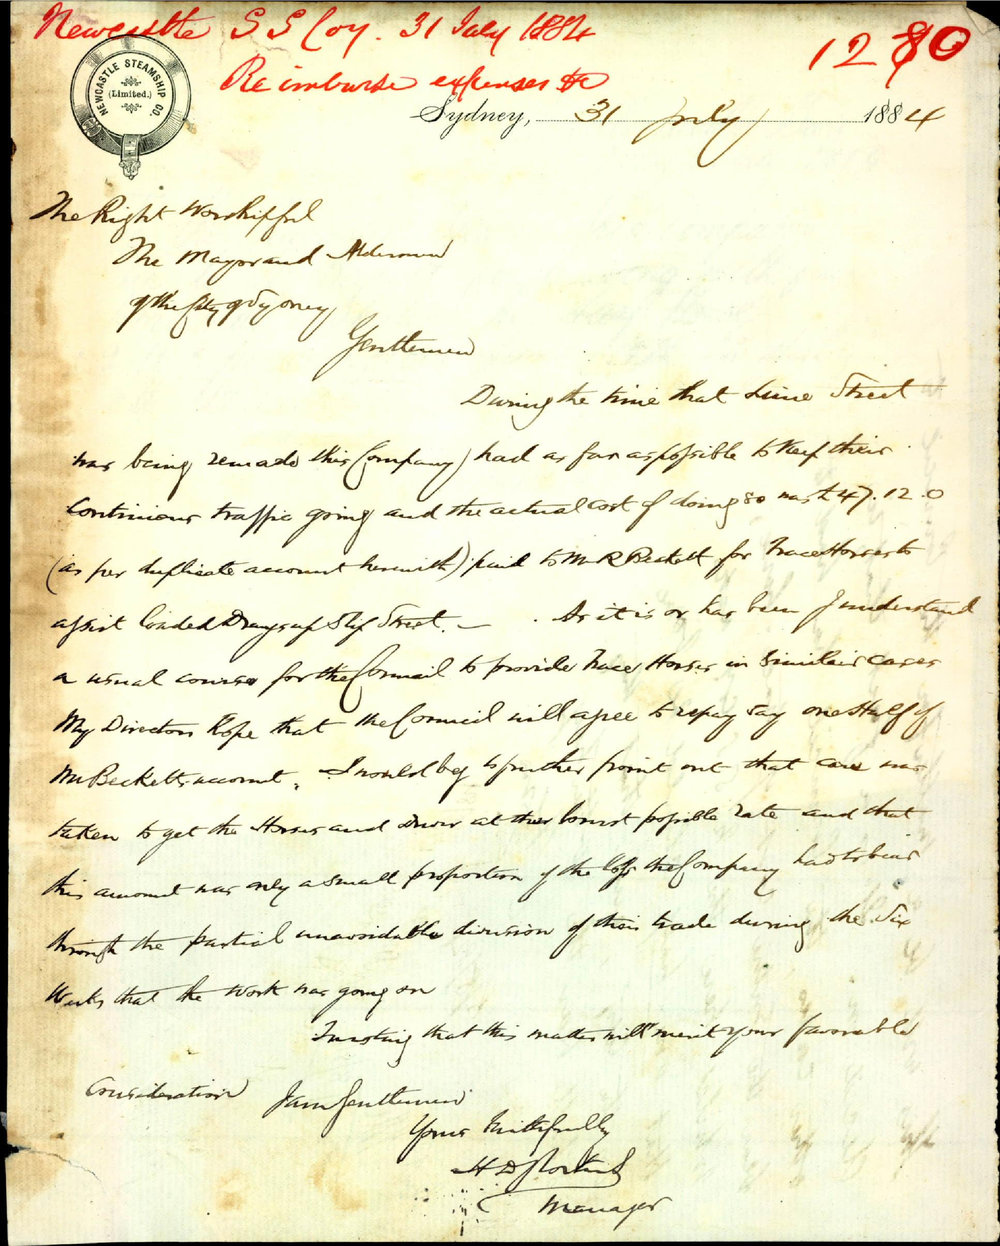 Newcastle S S Coy. 31 July 1884
1280
Re imburse expenses &c
NEWCASTLE STEAMSHIP CO.
(Limited.)
Sydney, 31 July 1884
The Right Worshipful
The Mayor and Aldermen
of the City of Sydney
Gentlemen
During the time that Lime Street
was being remade this Company had as far as possible to keep their
continious traffic going and the actual cost of doing so was £47.12.0
(as per duplicate account herewith) paid to Mr R Beckett for Trace Horses to
assist loaded Drays up Slip Street. — . As it is or has been I understand
a usual course for the Council to provide Trace Horses in similair cases
My Directors hope that the Council will agree to repay say one Half of
Mr Becketts account. I would beg to further point out that care was
taken to get the Horses and Driver at the lowest possible rate and that
this amount was only a small proportion of the loss the Company had to bear
through the partial unavoidable diversion of their trade during the Six
Weeks that the work was going on
Trusting that this matter will merit your favorable
consideration I am Gentlemen
Yours Faithfully
Manager